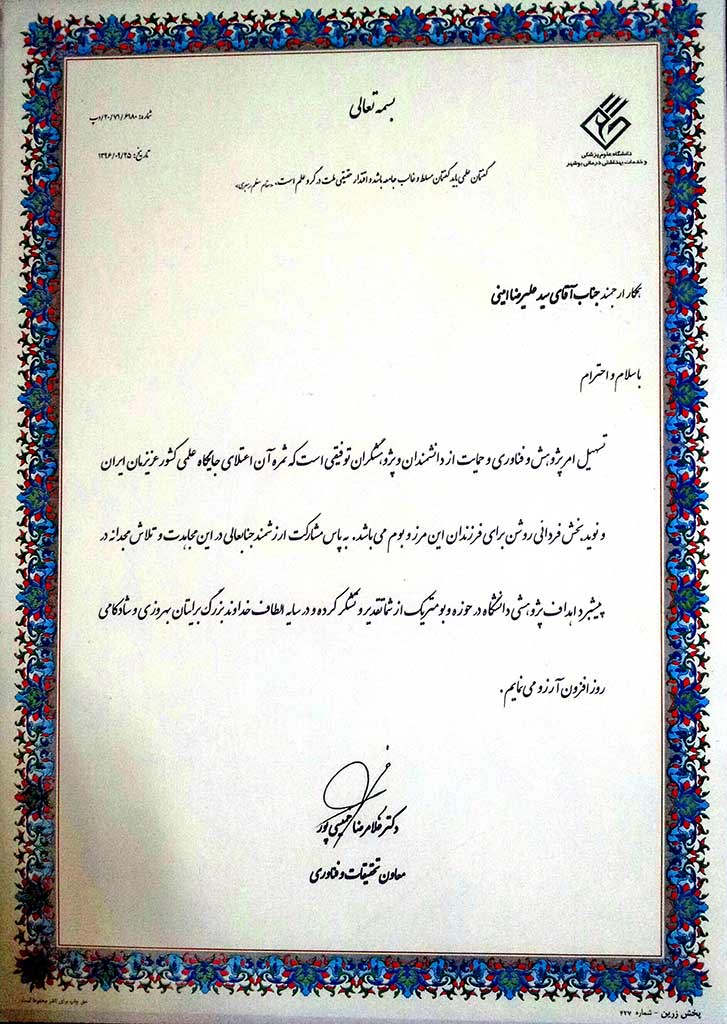 بسمه تعالی
دانشگاه علوم پزشکی
و خدمات بهداشتی درمانی بوشهر
شماره: ۲۰/۷۱/۶۱۸۰/پ
تاریخ: ۱۳۹۶/۰۹/۲۵
گفتمان علمی باید گفتمان مسلط و غالب جامعه باشد و اقتدار حقیقی ملت در گرو علم است. «مقام معظم رهبری»
همکار ارجمند جناب آقای سید علیرضا امینی
با سلام و احترام
تسهیل امر پژوهش و فناوری و حمایت از دانشمندان و پژوهشگران توفیقی است که ثمره آن اعتلای جایگاه علمی کشور عزیزمان ایران
و نوید بخش فردائی روشن برای فرزندان این مرز و بوم می باشد. به پاس مشارکت ارزشمند جنابعالی در این مجاهدت و تلاش مجدانه در
پیشبرد اهداف پژوهشی دانشگاه در حوزه وبومتریک از شما تقدیر و تشکر کرده و در سایه الطاف خداوند بزرگ برایتان بهروزی و شادکامی
روز افزون آرزو می نمایم.
دکتر غلامرضا
معاون تحقیقات و فناوری
حق چاپ برای ناشر محفوظ است
پخش زرین - شماره ۴۲۷